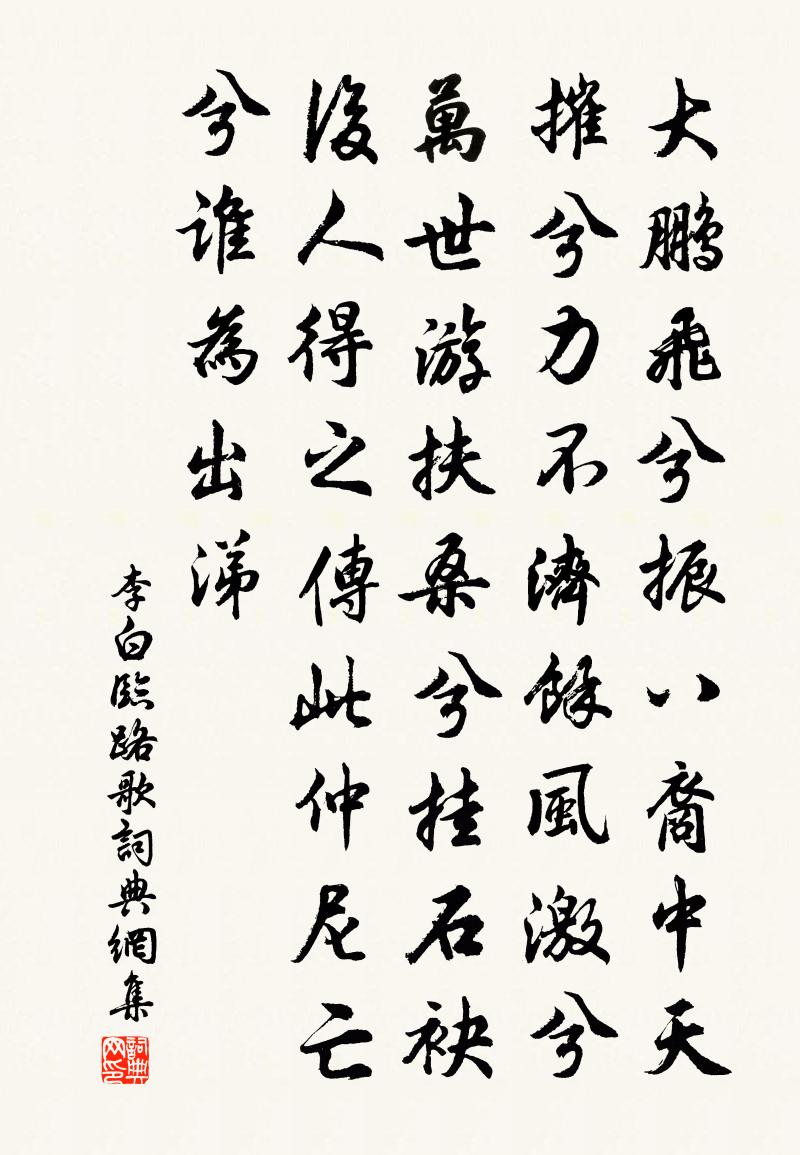 大鵬飛兮振八裔中天
摧兮力不濟餘風激兮
萬世游扶桑兮挂石袂
後人得之傳此仲尼亡
兮誰為出涕
李白臨路歌詞典網集
詞典网印